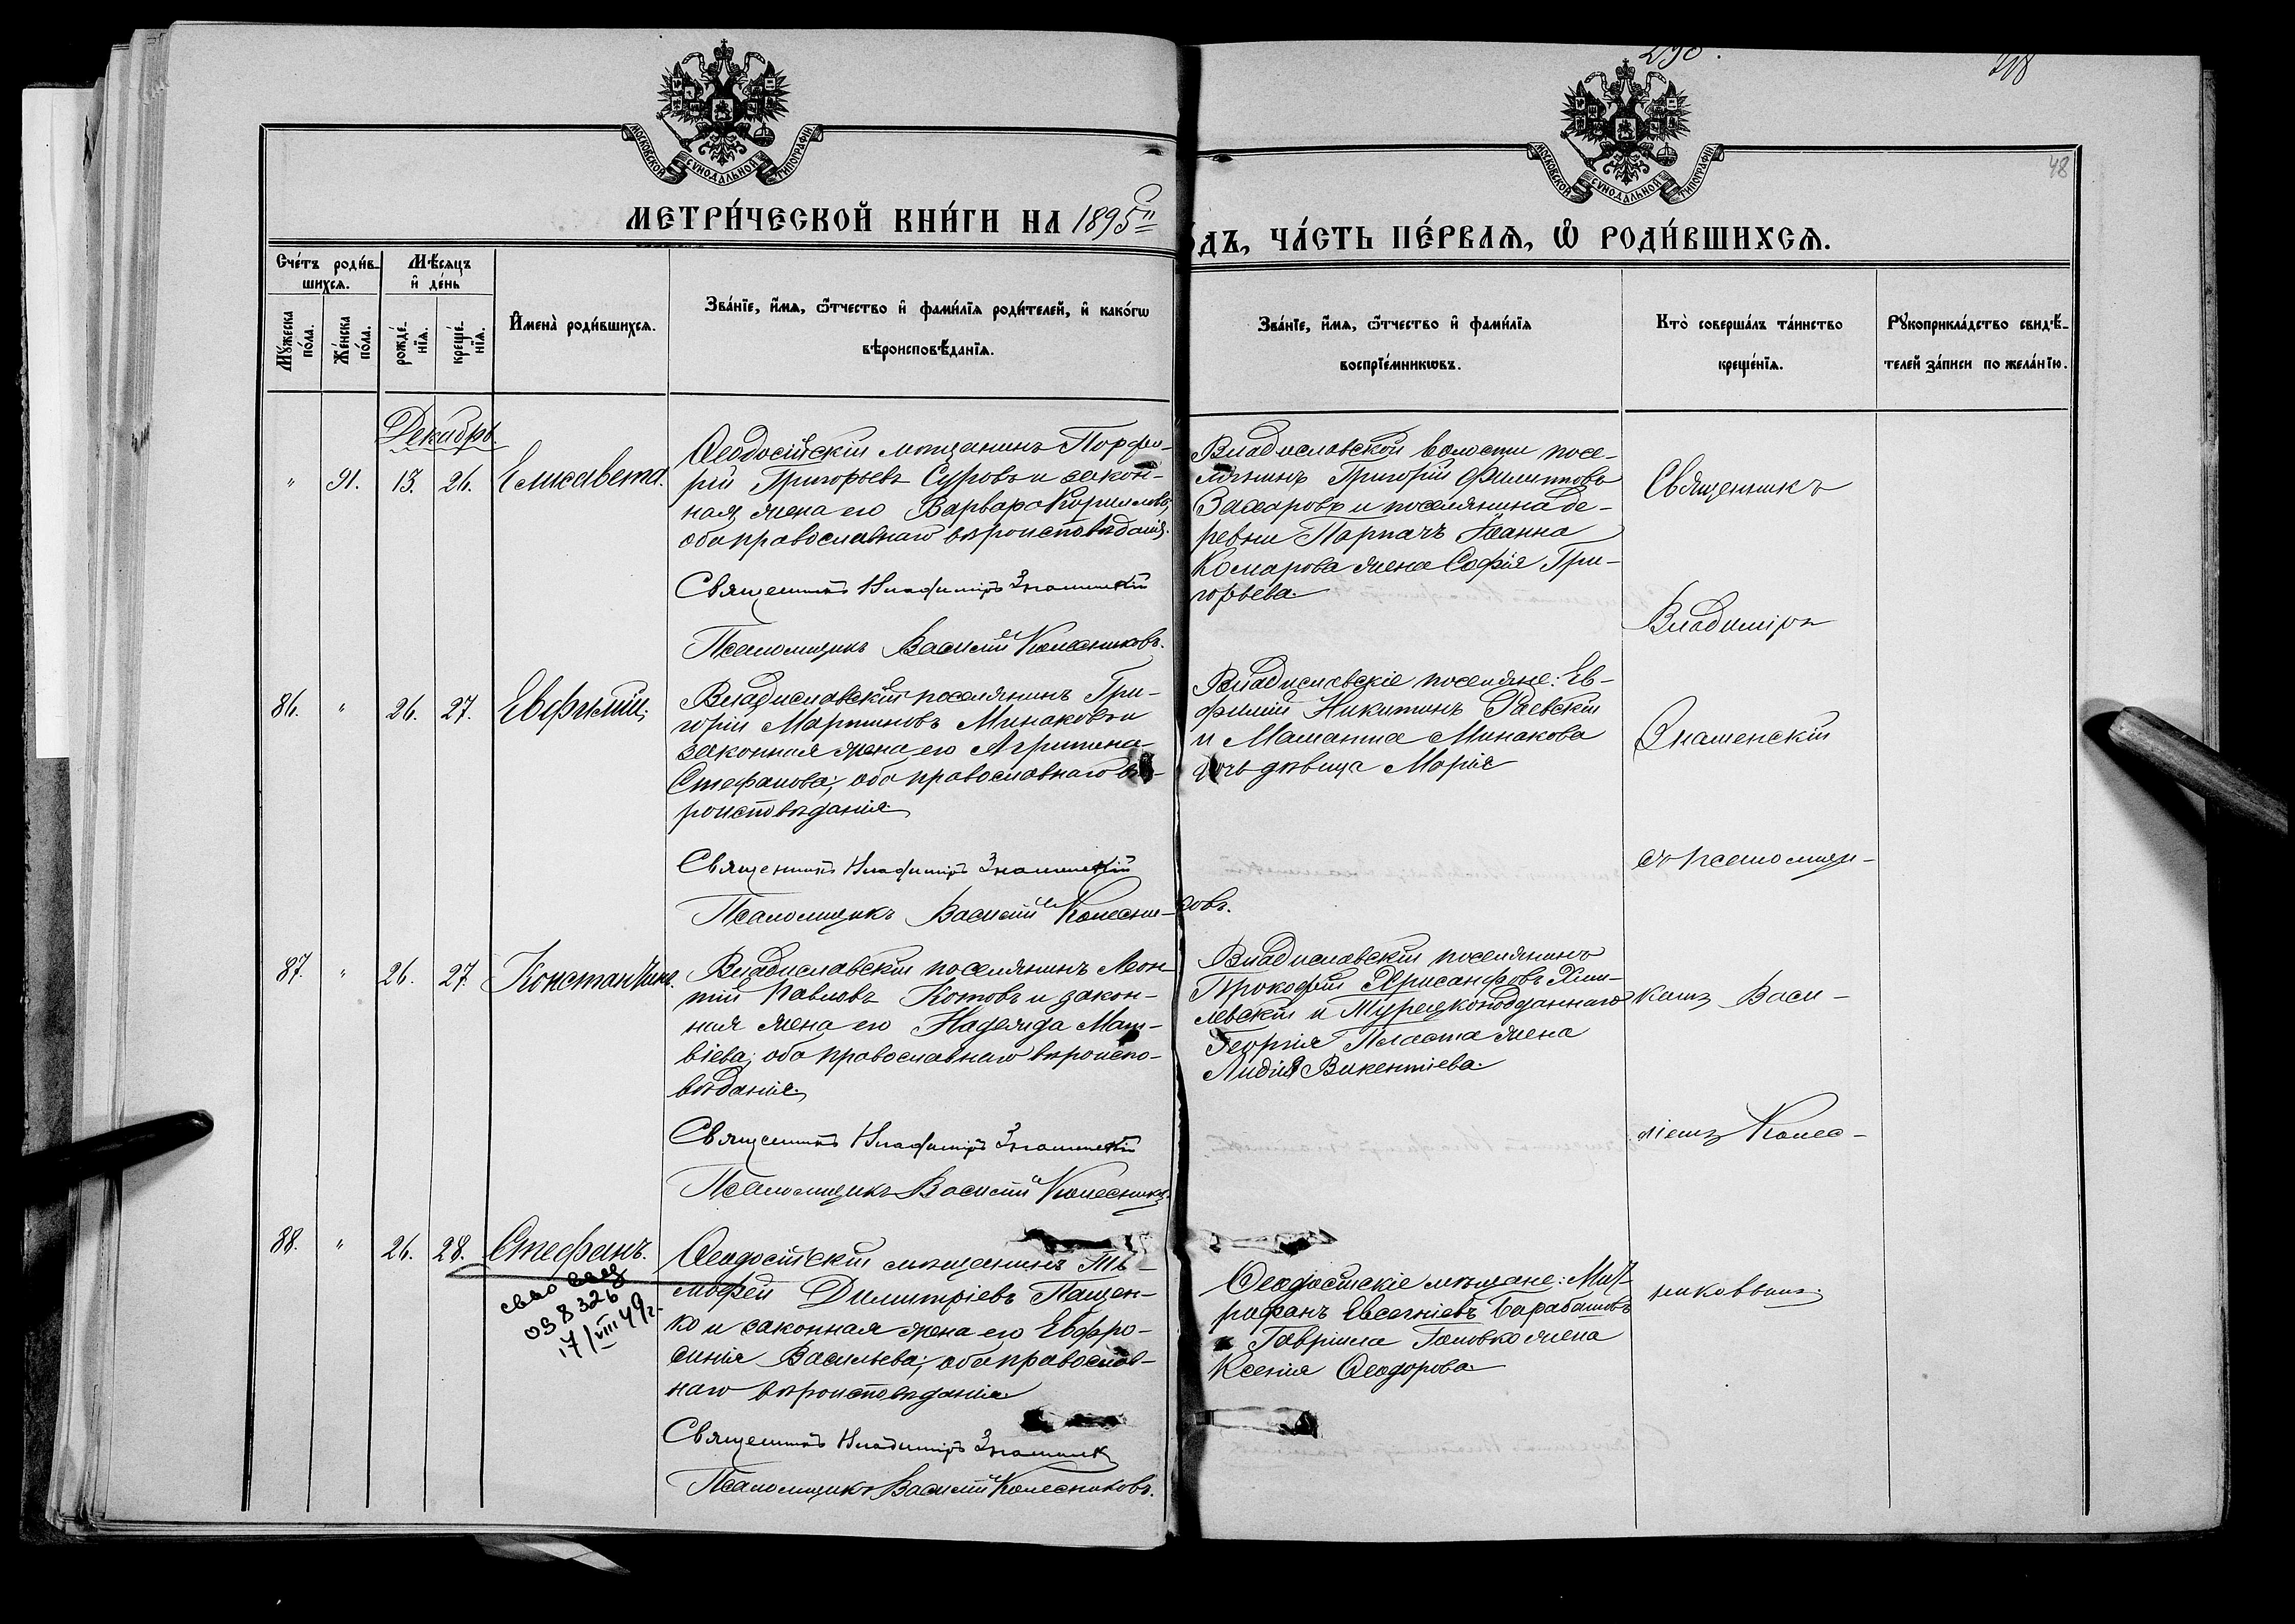 290.
218
48
МОСКОВСКОЙ СѴНОДАЛЬНОЙ ТИПОГРАФІИ
МОСКОВСКОЙ СѴНОДАЛЬНОЙ ТИПОГРАФІИ
МЕТРИ́ЧЕСКОЙ КНИ́ГИ НА 1895й
ДЪ, ЧА́СТЬ ПЕ́РВАѦ, Ѡ҆ РОДИ́ВШИХСѦ.
Сче́тъ роди́в-
шихсѧ.
Мꙋ́жеска по́ла.
Же́нска по́ла.
Мѣ́сѧцъ
и҆ де́нь
рожде́нїѧ.
креще́нїѧ.
И҆мена̀ роди́вшихсѧ.
Зва́нїе, и҆́мѧ, ѻ҆́тчество и҆ фами́лїѧ роди́телей, и҆ како́гѡ
вѣроисповѣ́данїѧ.
Зва́нїе, и҆́мѧ, ѻ҆́тчество и҆ фами́лїѧ
воспрїе́мникѡвъ.
Кто̀ соверша́лъ та́инство
креще́нїѧ.
Рꙋкоприкла́дство свидѣ́-
телей за́писи по жела́нїю.
Декабрь.
" 91. 13. 26. Елисавета.
Ѳеодосійскій мѣщанинъ Порфи-
рій Григорьевъ Суровъ и закон-
ная жена его Варвара Кориилова,
оба православнаго вѣроисповѣданія.
Священникъ Владиміръ Знаменскій
Псаломщикъ Василій Колесниковъ.
Владиславской волости посе-
лянинъ Григорій Филипповъ
Захаровъ и поселянина де-
ревни Парпачъ Іоанна
Комарова жена Софія Гри-
горьева.
86. " 26. 27. Евфимій.
Владиславскій поселянинъ Гри-
горій Мартиновъ Минаковъ и
законная жена его Агрипина
Стефанова; оба православнаго вѣ-
роисповѣданія.
Священникъ Владиміръ Знаменскій
Псаломщикъ Василій Колесни-
ковъ.
Владиславскіе поселяне: Ев-
фимій Никитинъ Раевскій
и Маманта Минакова
дочь дѣвица Марія
87. " 26. 27. Константинъ.
Владиславскій поселянинъ Леон-
тій Павловъ Котовъ и закон-
ная жена его Надежда Мат-
віева; оба православнаго вѣроиспо-
вѣданія.
Священникъ Владиміръ Знаменскій
Псаломщикъ Василій Колесников.
Владиславскій поселянинъ
Прокофій Хрисанфовъ Хми-
левскій и Турецкоподданнаго
Георгія Пласта жена
Лидія Викентіева.
88. " 26. 28. Стефанъ.
038326
17/VIII 49г.
Ѳеодосійскій мѣщанинъ Ти-
моѳей Димитріевъ Пащен-
ко и законная жена его Евфро-
синія Васильева; оба православ-
наго вѣроисповѣданія.
Священникъ Владиміръ Знаменск
Псаломщикъ Василій Колесниковъ.
Ѳеодосійскіе мѣщане: Мит-
рофанъ Евсегніевъ Барабашовъ
и Гавріила Головко жена
Ксенія Ѳеодорова.
Священникъ
Владиміръ
Знаменскій
съ псаломщи-
комъ Васи-
ліемъ Колес-
никовымъ.